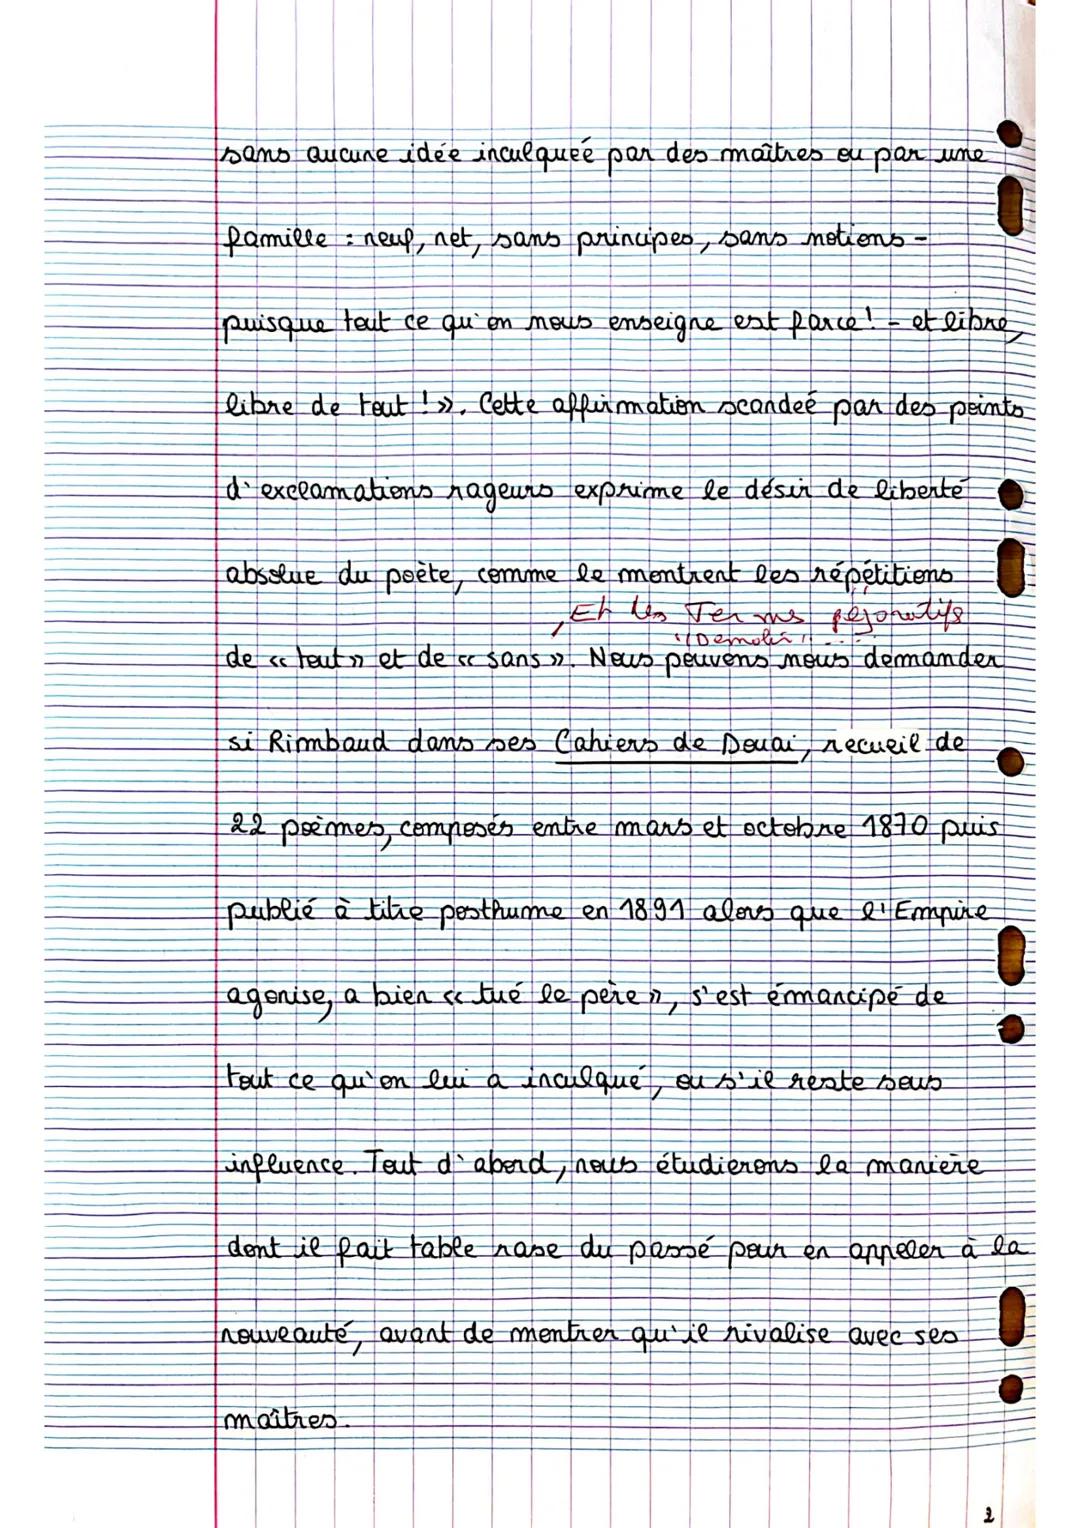 sans aucune idée inculqueé par des maîtres ou par une
famille : neuf, net, sans principes, sans notions -
puisque tout ce qu'on nous enseigne est farce! - et libre,
libre de tout ! ». Cette affirmation scandeé par des points
d'exclamations rageurs exprime le désir de liberté
absolue du poète, comme le montrent les répétitions
, Et les Termes péjoratifs
"Demolir" ...
de « tout » et de « sans ». Nous pouvons nous demander
si Rimbaud dans ses Cahiers de Douai, recueil de
22 poèmes, composés entre mars et octobre 1870 puis
publié à titre posthume en 1891 alors que l'Empire
agonise, a bien « tué le père », s'est émancipé de
tout ce qu'on lui a inculqué, ou s'il reste sous
influence. Tout d'abord, nous étudierons la manière
dont il fait table rase du passé pour en appeler à la
nouveauté, avant de montrer qu'il rivalise avec ses
maîtres.
2